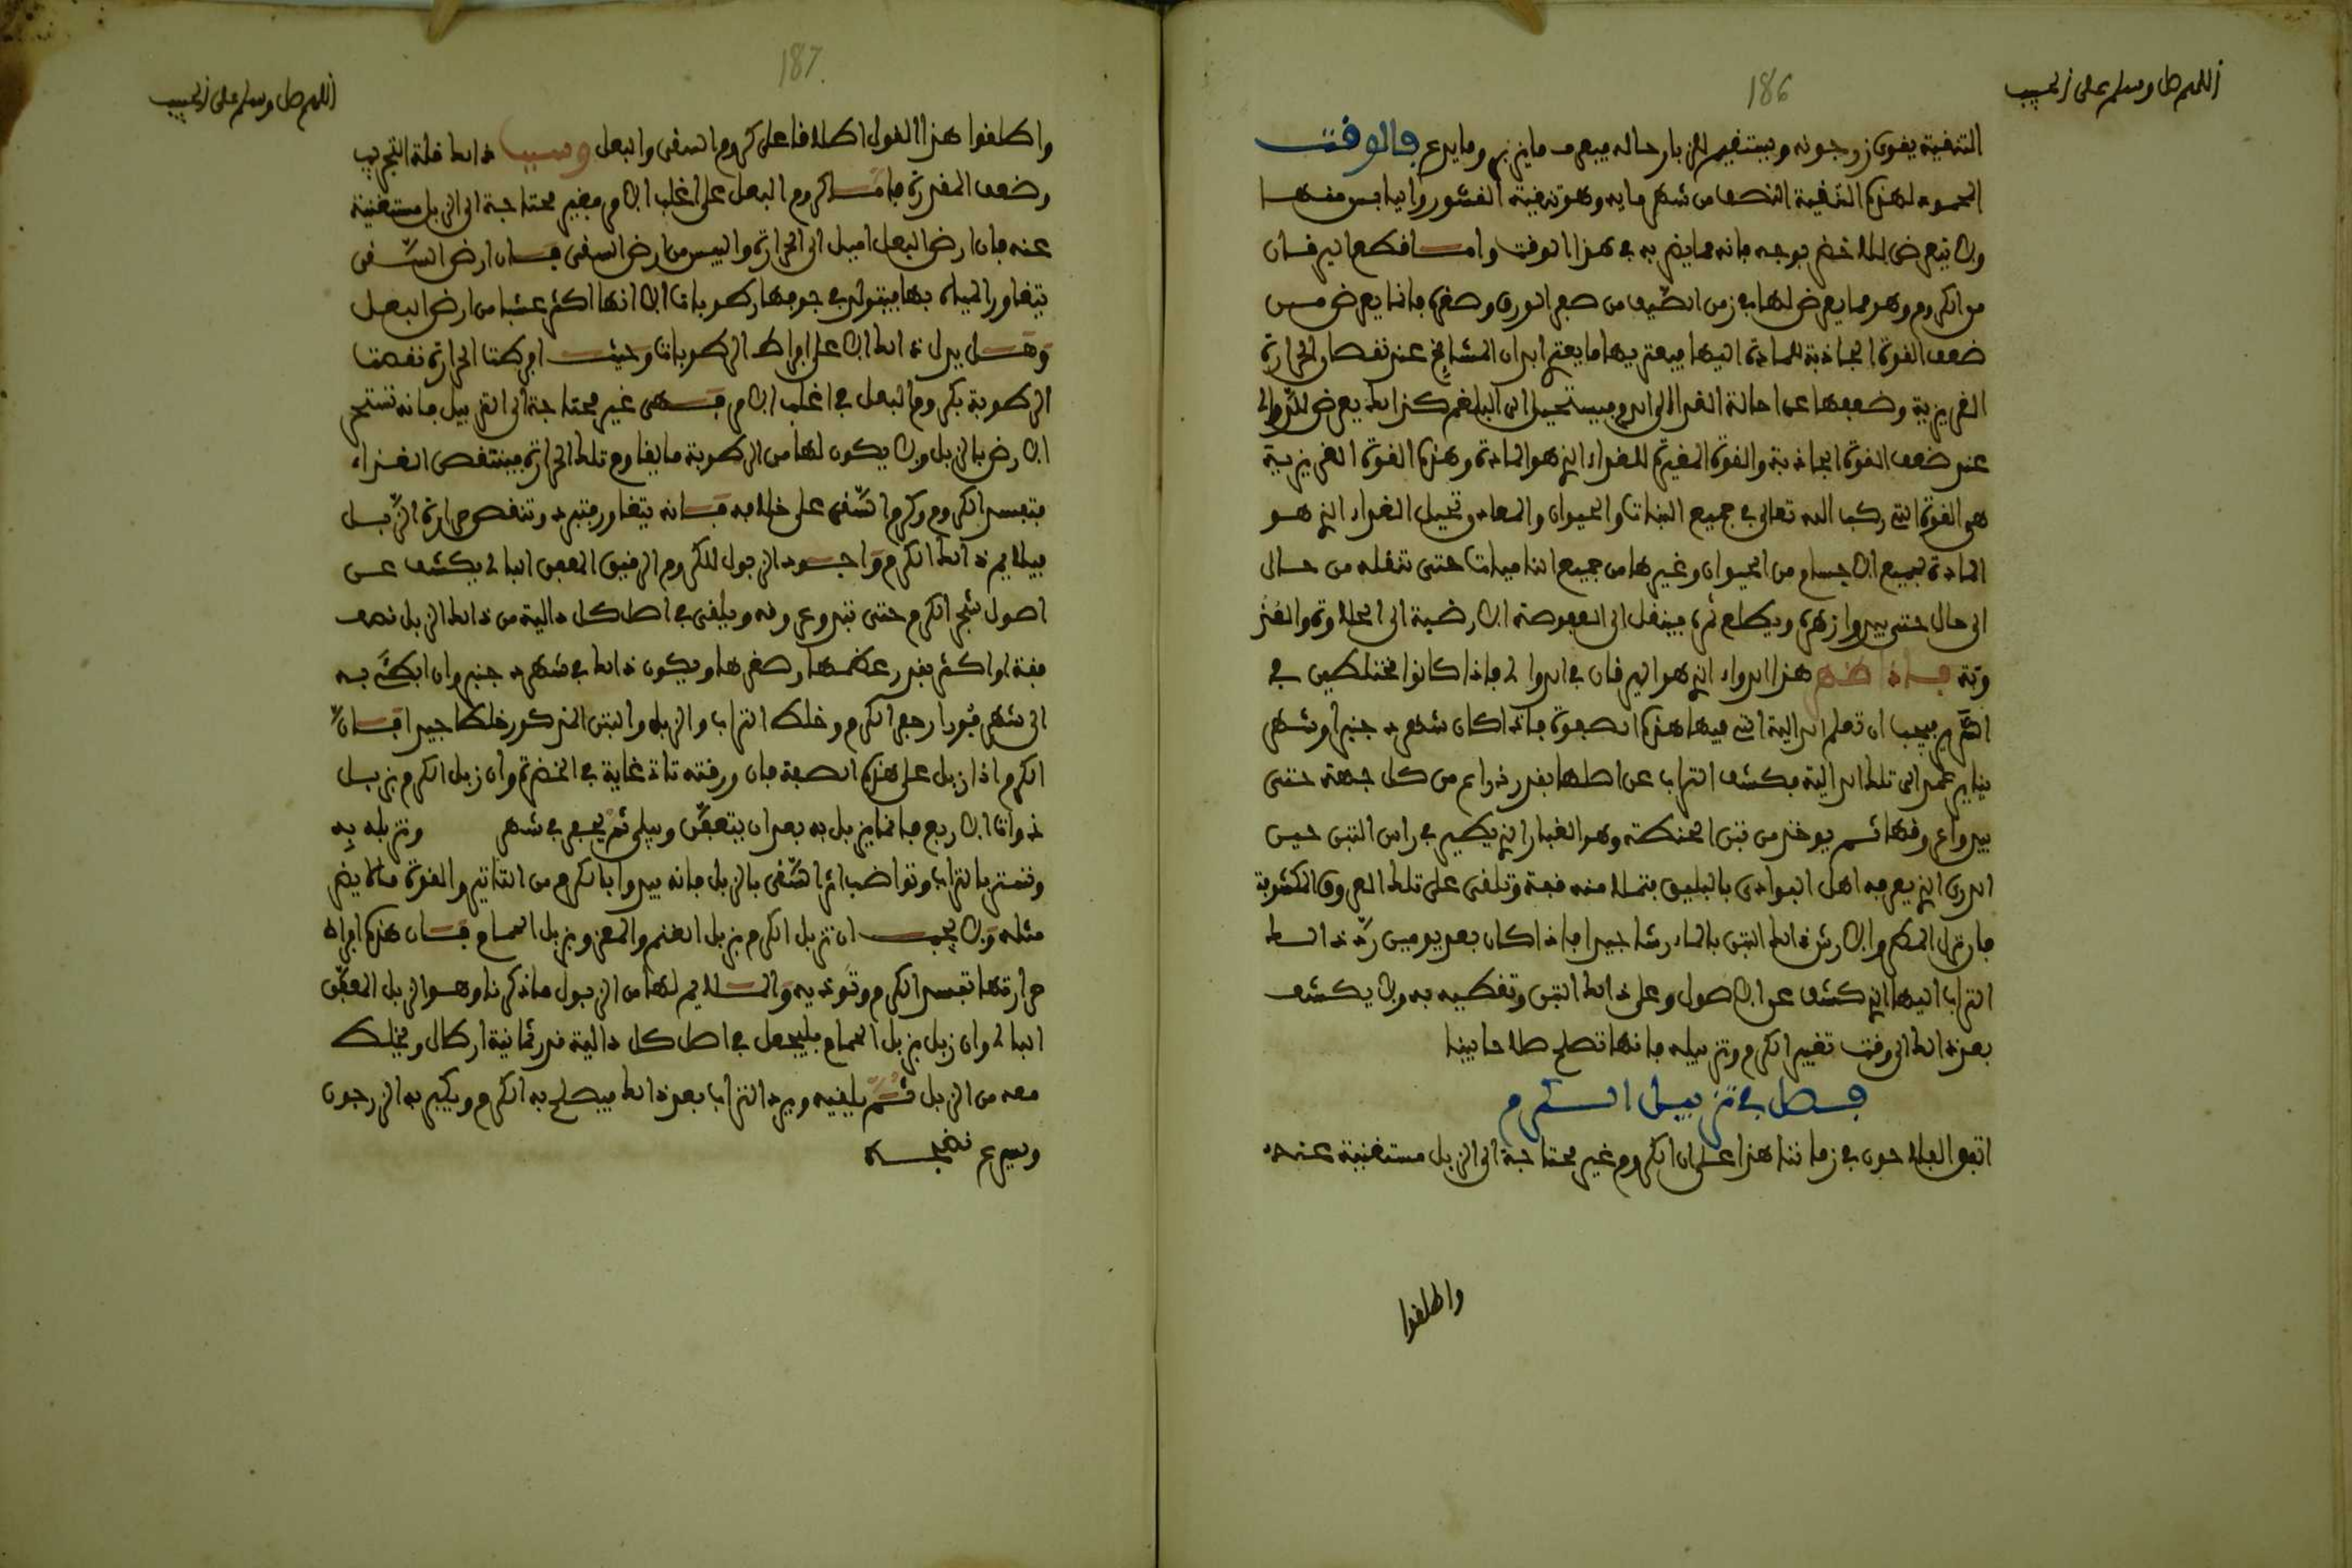 اللهم صل وسلم على الحبيب
186
التنقية يقوى زرجونه ويستقيم للزبار حاله فيعرف ما يزبر وما يدع قال الوقت
المحمود لهذه التنقية النصف من شهر مايه وهو تنقية القشور واليابس منها
ولا يتعرض للاخضر بوجه فانه مما يضر به في هذا الوقت واما قطع اليرقان
من الكروم وهو مما يعرض لها في زمن الصيف من صبع الورق وصفرة فانما يعرض من
ضعف القوة الجاذبة للمادة اليها فيعتريها ما يعتري ابدان المشايخ عند نقصان الحرارة
الغريزية وضعفها عن احالة الغذا الى الدم فيستحيل الى البلغم كذلك يعرض للدوالي
عند ضعف القوة الجاذبة والقوة المغيرة للغذاء الذي هو المادة وهذه القوة الغريزية
هي القوة التي ركبها الله تعالى في جميع النبات والحيوان والمعادن وتحيل الغذاء الذي هو
المادة لجميع الاجسام من الحيوان وغيرها من جميع الناميات حتى تنقله من حال
الى حال حتى يبدوا زهره ويطلع ثمره فينقل الى العفوصة الارضية الى الحلاوة والغذ
وبة فاذا ظهر هذا الداء الذي هو اليرقان في الدوالي فاذا كانوا مختلطين في
الكرم فيجب ان تعلم الدالية التي فيها هذه الصفرة فاذا كان شهر دجنبر او شهر
يناير عمد الى تلك الدالية فكشف التراب عن اصلها بقدر ذراع من كل جهة حتى
يبدوا عروقها ثم يوخذ من تبن الحنطة وهو الغبار الذي يطير في راس التبن حين
الدرس الذي يعرفه اهل البوادي بالبليق فتملا منه قفة وتلقى على تلك العروق المكشوفة
فان نزل المطر والا رش ذلك التبن بالماء رشا جيدا فاذا كان بعد يومين رد ذلك
التراب اليها الذي كشف عن الاصول وعلى ذلك التبن وتغطيه به ولا يكشف
بعد ذلك الى وقت تغيير الكرم وتزبيله فانها تصلح صلاحا بينا
فصل في تزبيل الكرم
اتفق الفلاحون في زماننا هذا على ان الكروم غير محتاجة الى الزبل مستغنية عنه
واطلقوا
اللهم صل وسلم على الحبيب
187
واطلقوا هذا القول اطلاقا على كروم السقي والبعل وسبب ذلك قلة التجريب
وضعف المقدرة فاما كروم البعل على اغلب الامر فغير محتاجة الى الزبل مستغنية
عنه فان ارض البعل اميل الى الحرارة واليبس من ارض السقي فان ارض السقي
يتعاور المياه بها فيتولد في جوفها رطوبات الا انها اكثر عشبا من ارض البعل
وهل يدل ذلك الا على افراط الرطوبات وحيث افرطت الحرارة نقصت
الرطوبة بكروم البعل في اغلب الامر فهي غير محتاجة الى التزبيل فانه تستحر
الارض بالزبل ولا يكون لها من الرطوبة ما يقاوم تلك الحرارة فينتقص الغذاء
فتفسد الكروم وكرم السقي على خلافه فانه يتعاور فتبرد وتنقص حرارة الزبل
فيلايم ذلك الكرم واجود الزبول للكروم الرقيق المعفن البالي يكشف عن
اصول شجر الكرم حتى تبدو عروقه ويلقى في اصل كل دالية من ذلك الزبل نصف
قفة او اكثر بقدر عظمها وصغرها ويكون ذلك في شهر دجنبر وان ابطئ به
الى شهر فبورار رجع الكرم وخلط التراب والزبل والتبن المذكور خلطا جيدا فان
الكرم اذا زبل على هذه الصفة فان ورقته تاتي غاية في الخضرة وان زبل الكرم بزبل
ذوات الاربع فانما يزبل به بعد ان يتعفن ويبلى ثم يجمع في شهر وتزبله به
وتستر بالتراب وتواضب اثر السقي بالزبل فانه يبدوا بالكرم من التاثير والقوة ما لا يضر
مثله ولا يجب ان تزبل الكرم بزبل الغنم والمعز وبزبل الحمام فان هذه افراط
حرارتها تفسد الكرم وتوذيه والملايم لها من الزبول ما ذكرنا وهو الزبل المعفن
البالي وان زبل بزبل الحمام فليجعل في اصل كل دالية قدر ثمانية ارطال ويخلط
معه من الزبل ثم يلقيه ويرد التراب بعد ذلك فيصلح به الكرم ويكبر به الزرجون
ويسرع نضجه